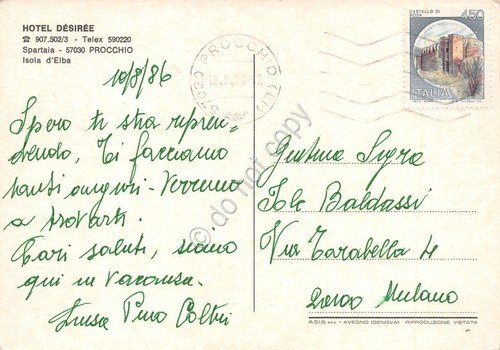 HOTEL DÉSIRÉE
☎ 907.502/3 - Telex 590220
Spartaia - 57030 PROCCHIO
Isola d'Elba
10/8/86
Spero ti stia ripren-
dendo, Ti facciamo
tanti auguri - Verremo
a trovarti.
Cari saluti, siamo
qui in vacanza.
Luisa Pino
57030 PROCCHIO (LI)
CASTELLO DI
450
ITALIA
do not copy
Gentma Sigra
Baldassi
Via Tarabella 4
20100 Milano
A.G.I.S. s.n.c. - AVEGNO (GENOVA) RIPRODUZIONE VIETATA